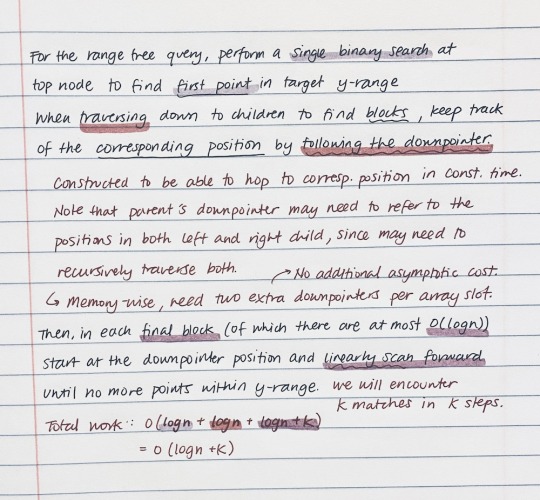 For the range tree query, perform a single binary search at
top node to find first point in target y-range
When traversing down to children to find blocks, keep track
of the corresponding position by following the downpointer
Constructed to be able to hop to corresp. position in const. time.
Note that parent's downpointer may need to refer to the
positions in both left and right child, since may need to
recursively traverse both.
→ No additional asymptotic cost.
↳ Memory-wise, need two extra downpointers per array slot.
Then, in each final block (of which there are at most O(logn))
start at the downpointer position and linearly scan forward
until no more points within y-range. we will encounter
k matches in k steps.
Total work: O(logn + logn + logn+k)
= O(logn +k)